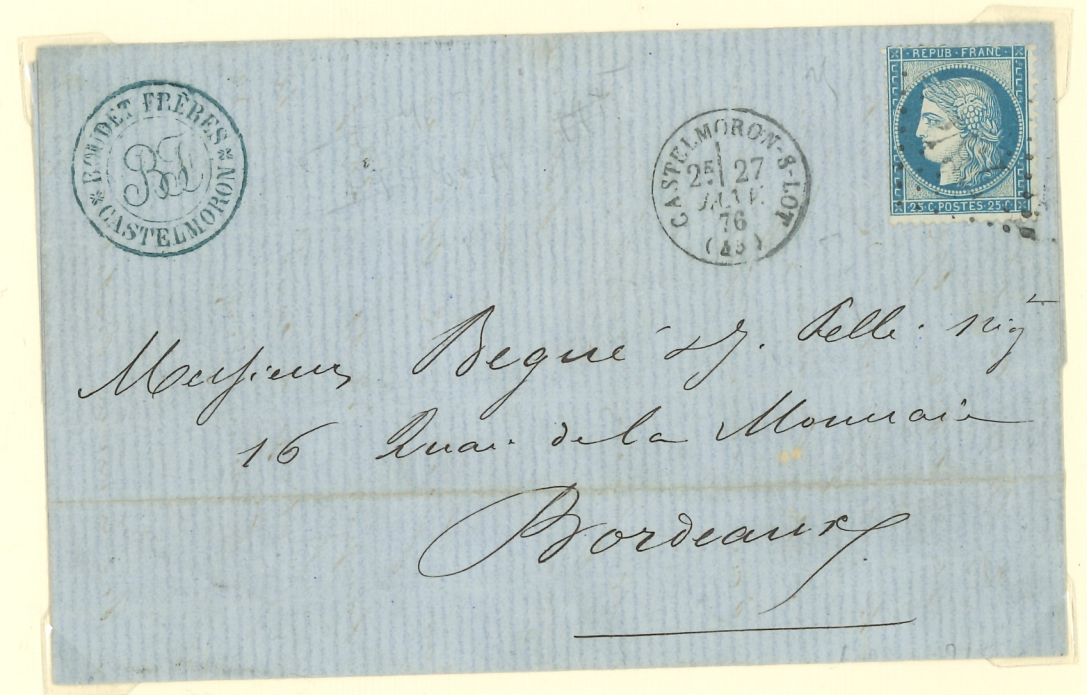 BOUDET FRÈRES
BF
CASTELMORON
CASTELMORON-S-LOT
2E 27
JANV.
76
(45)
REPUB · FRANC ·
25 C POSTES 25 C
Messieurs Begué & J. Pelle
16 Quai de la Monnaie
Bordeaux